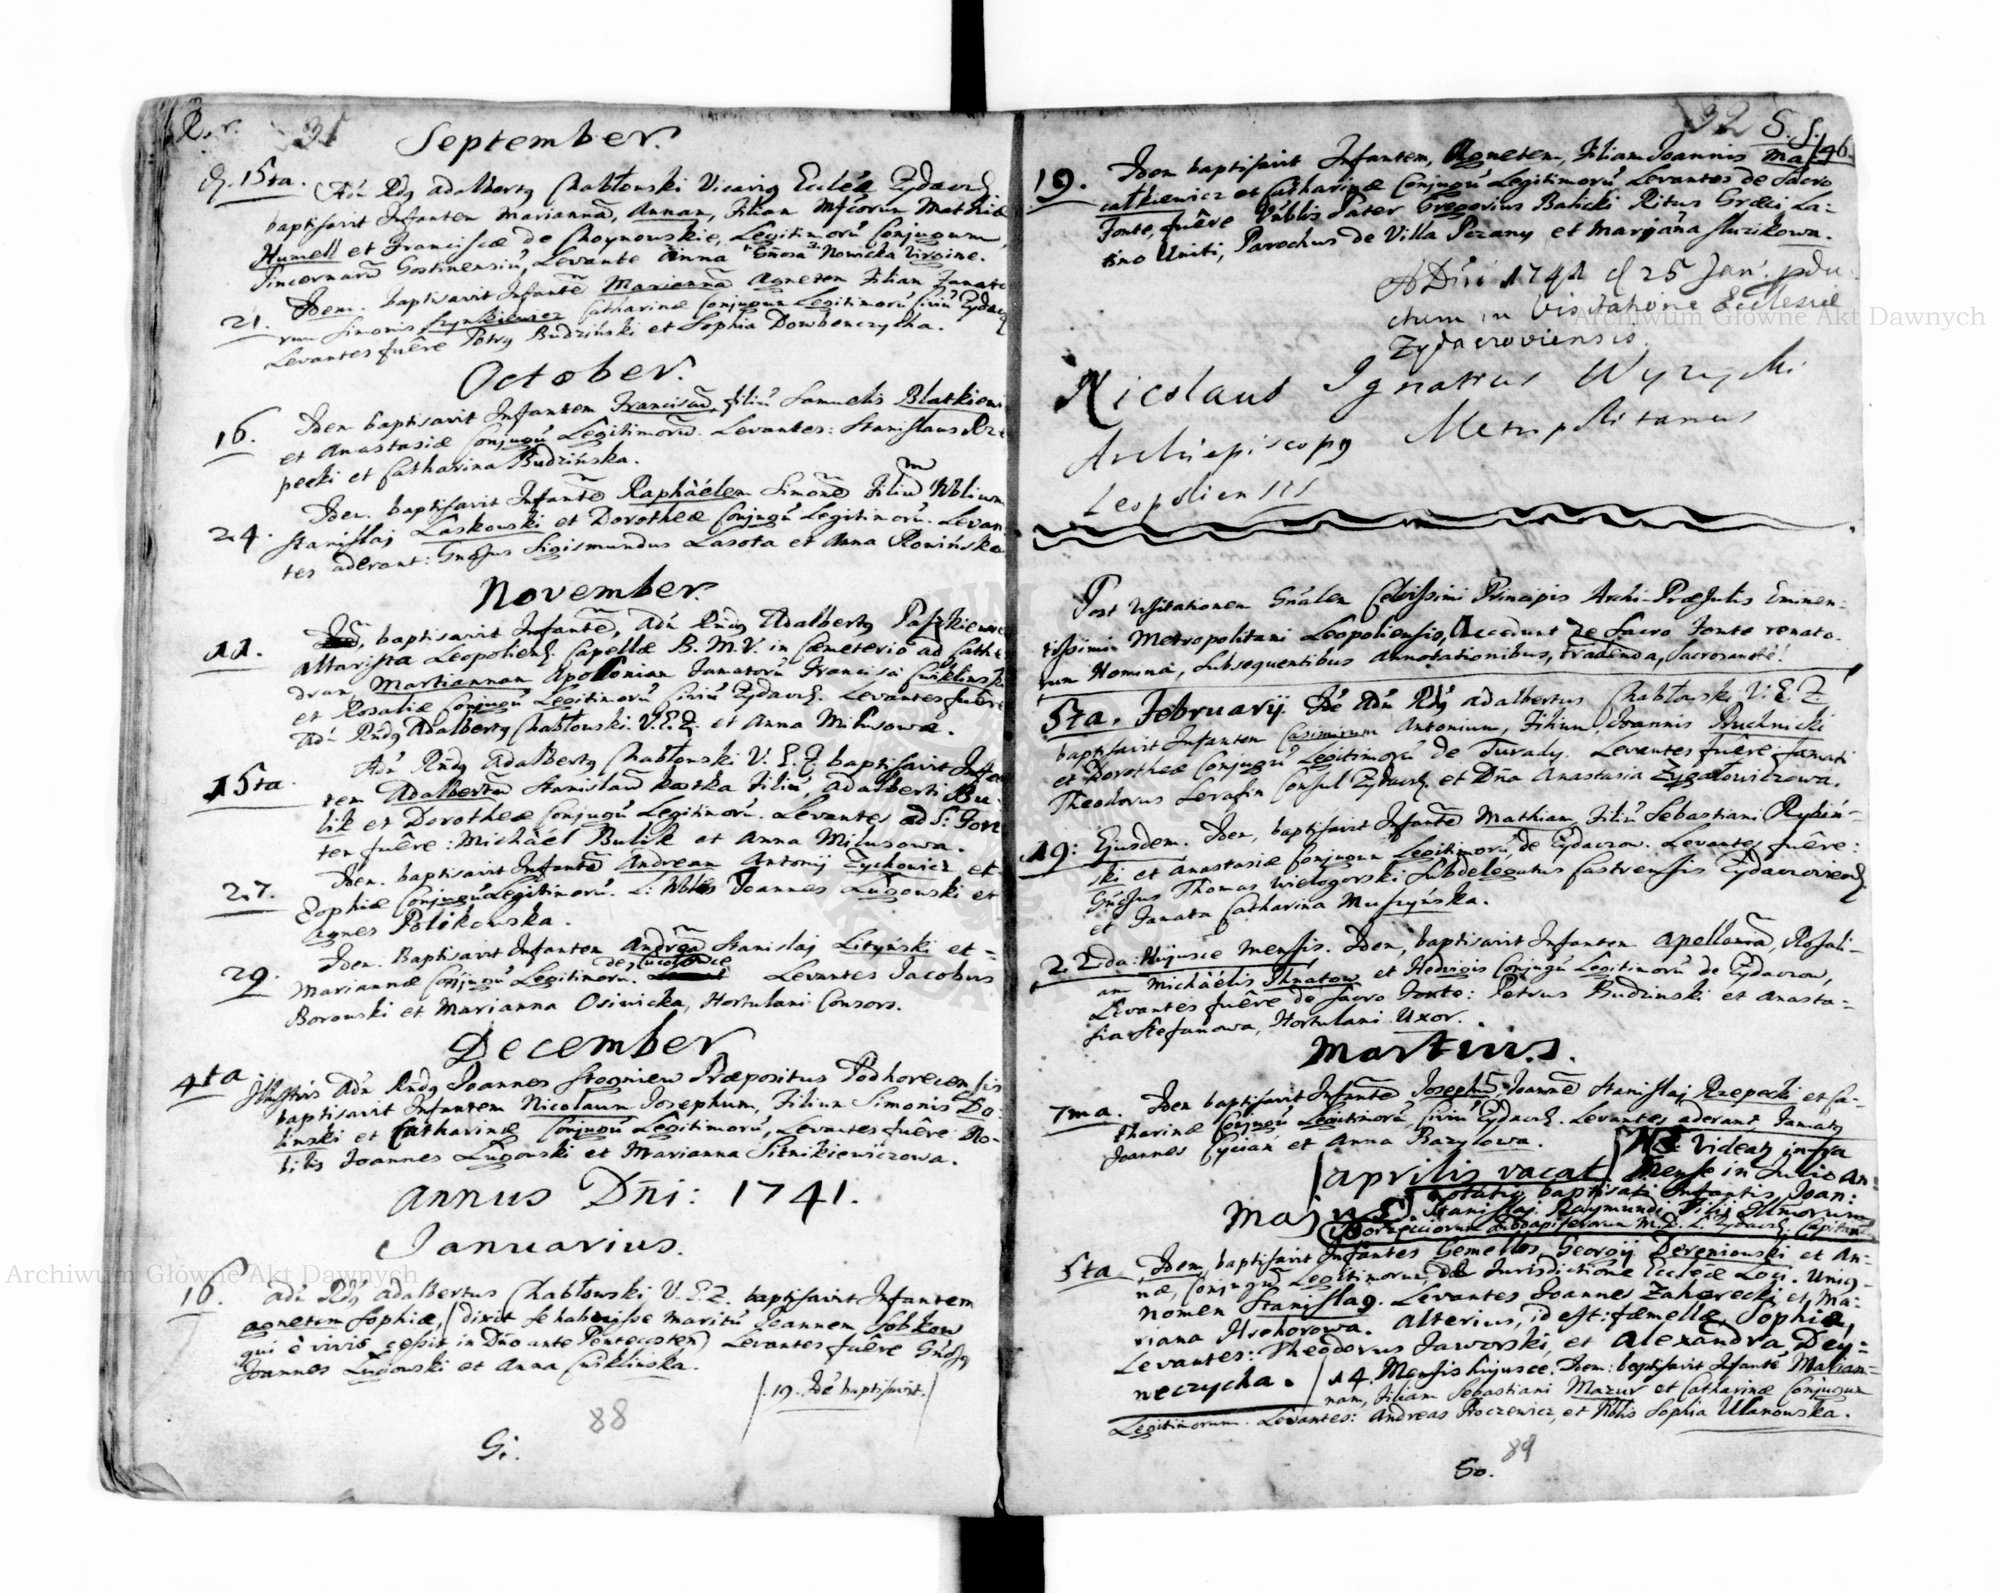 31
September.
d. 15ta. Adm Rndg Adalbertg Chabłowski Vicarig Eccleæ Zydacz.
baptisavit Infantem Mariannã, Annam, Filiam Mathiæ
Humell et Franciscæ de Choynowskie, Legitimorũ Conjugum,
Levante Anna Nowicka Virgine.
21. Idem. baptisavit Infantẽ Mariannã Agnetem Filiam
Simonis Szynkiewicz Catharinæ Conjugum Legitimorũ Civiũ
Levantes fuêre Petrg Budziński et Sophia Dowbenczycha.
October.
16. Idem baptisavit Infantem Franciscũ, filiũ Samuelis
et Anastasiæ Conjugũ Legitimorũ. Levantes: Stanislaus Rze
pecki et Catharina Budzińska.
24. Idem. baptisavit Infantẽ Raphaëlem Simonẽ Filiũ Nblium
Stanislaj Laskowski et Dorotheæ Conjugũ Legitimorũ. Levan
tes aderant: Gnosus Sigismundus Lasota et Anna
November.
11. baptisavit Infantẽ, Adm Rndg Adalbertg
Altarista Leopoliens. Capellæ B. M. V. in Cæmeterio ad Cathe
dram, Martiannam Apolloniam Famatorũ Francisci
et Rosaliæ Conjugũ Legitimorũ Civiũ Zydacz. Levantes fuêre
Adm Rndg Adalbertg Chabłowski V. E. Z. et Anna Milusowa.
15ta. Adm Rndg Adalbertg Chabłowski V. E. Z. baptisavit Infan
tem Adalbertũ Stanislaũ kostka Filiũ, Adalberti Bu-
lik et Dorotheæ Conjugũ Legitimorũ. Levantes ad S: Fon
tem fuêre: Michaël Bulik et Anna Milusowa.
27. Idem. baptisavit Infantẽ Andream Antonij Zychowicz et
Zophiæ Conjugũ Legitimorũ. L: Nblis Joannes Lugowski et
Agnes Polikowska.
29. Idem. Baptisavit Infantem Andreã Stanislaj Lityński et =
Mariannæ Conjugũ Legitimorũ. de Levantes Jacobus
Borowski et Marianna Osiwicka, Hortulani Consors.
December
4ta Illustris Adm Rndg Joannes Stogniew Præpositus Podhorecensis
baptisavit Infantem Nicolaum Josephum, Filium Simonis Do-
linski et Catharinæ Conjugũ Legitimorũ, Levantes fuêre No-
bilis Joannes Lugowski et Marianna Sitnikiewiczowa.
Annus Dñi: 1741.
Januarius.
16. Adm Rdg Adalbertus Chabłowski V. E. Z. baptisavit Infantem
Agnetem Sophiæ, (dixit se habuisse maritũ Joannem Sobkow
qui è vivis cessit in Dño ante Pentecosten) Levantes fuêre Gnosg
Joannes Lugowski et Anna Cwiklinska.
19. Idẽ baptisavit.
88
Gi.
32
19. Idem baptisavit Infantem, Agnetem, Filiam Joannis Ma
całkiewicz et Catharinæ Conjugũ Legitimorũ Levantes de Sacro
Fonte, fuêre Nblis Pater Gregorius Balicki Ritus Græci La-
tino Uniti, Parochus de Villa Pczany et Marjãna Sluzikowa.
A Dñi 1741 d 25 Jan. pdu
ctum in Visitatione Ecclesiæ
Zydaczoviensis.
Nicolaus Ignatius Wyzycki
Archiepiscopg Metropolitanus
Leopoliensis
Post Visitationem Gñalem Celsissimi Principis Archi-Præsulis Eminen-
tissimi Metropolitani Leopoliensis, Accedunt de Sacro Fonte renato-
rum Nomina, subsequentibus Annotationibus, tradenda, Sacrosanctè!
5ta. Februarij. Idẽ Adm Rdg Adalbertus Chabłowski V. E. Z
baptisavit Infantem Casimirum Antonium, Filium Joannis Ruchnicki
et Dorotheæ Conjugũ Legitimorũ de Turady. Levantes fuêre famati
Theodorus Serafin Consul Zydacz. et Dña Anastasia Zygałowiczowa.
19: Ejusdem. Idem, baptisavit Infantẽ Mathiam, Filiũ Sebastiani Rybiń-
ski et Anastasiæ Conjugum Legitimorũ, de Zydaczow. Levantes fuêre:
Gnosus Thomas Wielogorski Subdelegatus Castrensis Zydaczoviens.
et Famata Catharina Muszyńska.
22da: Hujusce Mensis. Idem, baptisavit Infantem Apelloniã, Rosali-
am Michaëlis Ihnatow et Hedvigis Conjugũ Legitimorũ de Zydaczow,
Levantes fuêre de Sacro Fonte: Petrus Budzinski et Anasta-
sia Stefanowa, Hortulani Uxor.
Martius.
7ma. Idem baptisavit Infantẽ Josephũ Joannẽ Stanislaj Rzepecki et Ca-
tharinæ Conjugũ Legitimorũ, Civiũ Zydacz. Levantes aderant, Famatg
Joannes Cycian et Anna Bazylowa.
Aprilis vacat
NB Videatg infra
Mense in Junio An-
notatig baptisati Infantis, Joan:
Stanislaj Raymundi Filij Illmorum
Majus.
5ta Idem, baptisavit Infantes Gemellos, Georgij Dereniowski et An-
næ, Conjugũ Legitimorum, de Jurisdictione Eccleæ Loci. Unig -
nomen Stanislag. Levantes Joannes Zaharecki et Ma-
riana Ilschorowa. Alterius, id est: fæmellæ, Sophiæ,
Levantes: Theodorus Jaworski, et Alexandra Dey=
neczycha. 14. Mensis hujusce. Idem: baptisavit Infantẽ, Marian=
nam, Filiam Sebastiani Mazur et Catharinæ Conjugum
Legitimorum. Levantes: Andreas Proczewicz, et Nblis Sophia Ulanowska.
89
Go.
Archiwum Główne Akt Dawnych
Archiwum Główne Akt Dawnych